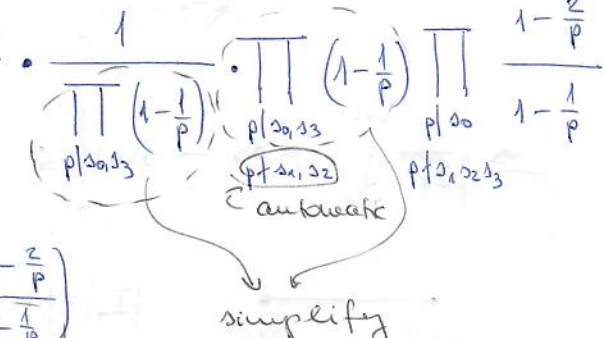 · 1 / ∏_{p|s0,s3} (1 - 1/p) · ∏_{p|s0,s3, p∤s1,s2} (1 - 1/p) ∏_{p|s0, p∤s1s2s3} (1 - 2/p) / (1 - 1/p)
automatic
- 2/p
- 1/p )
simplify